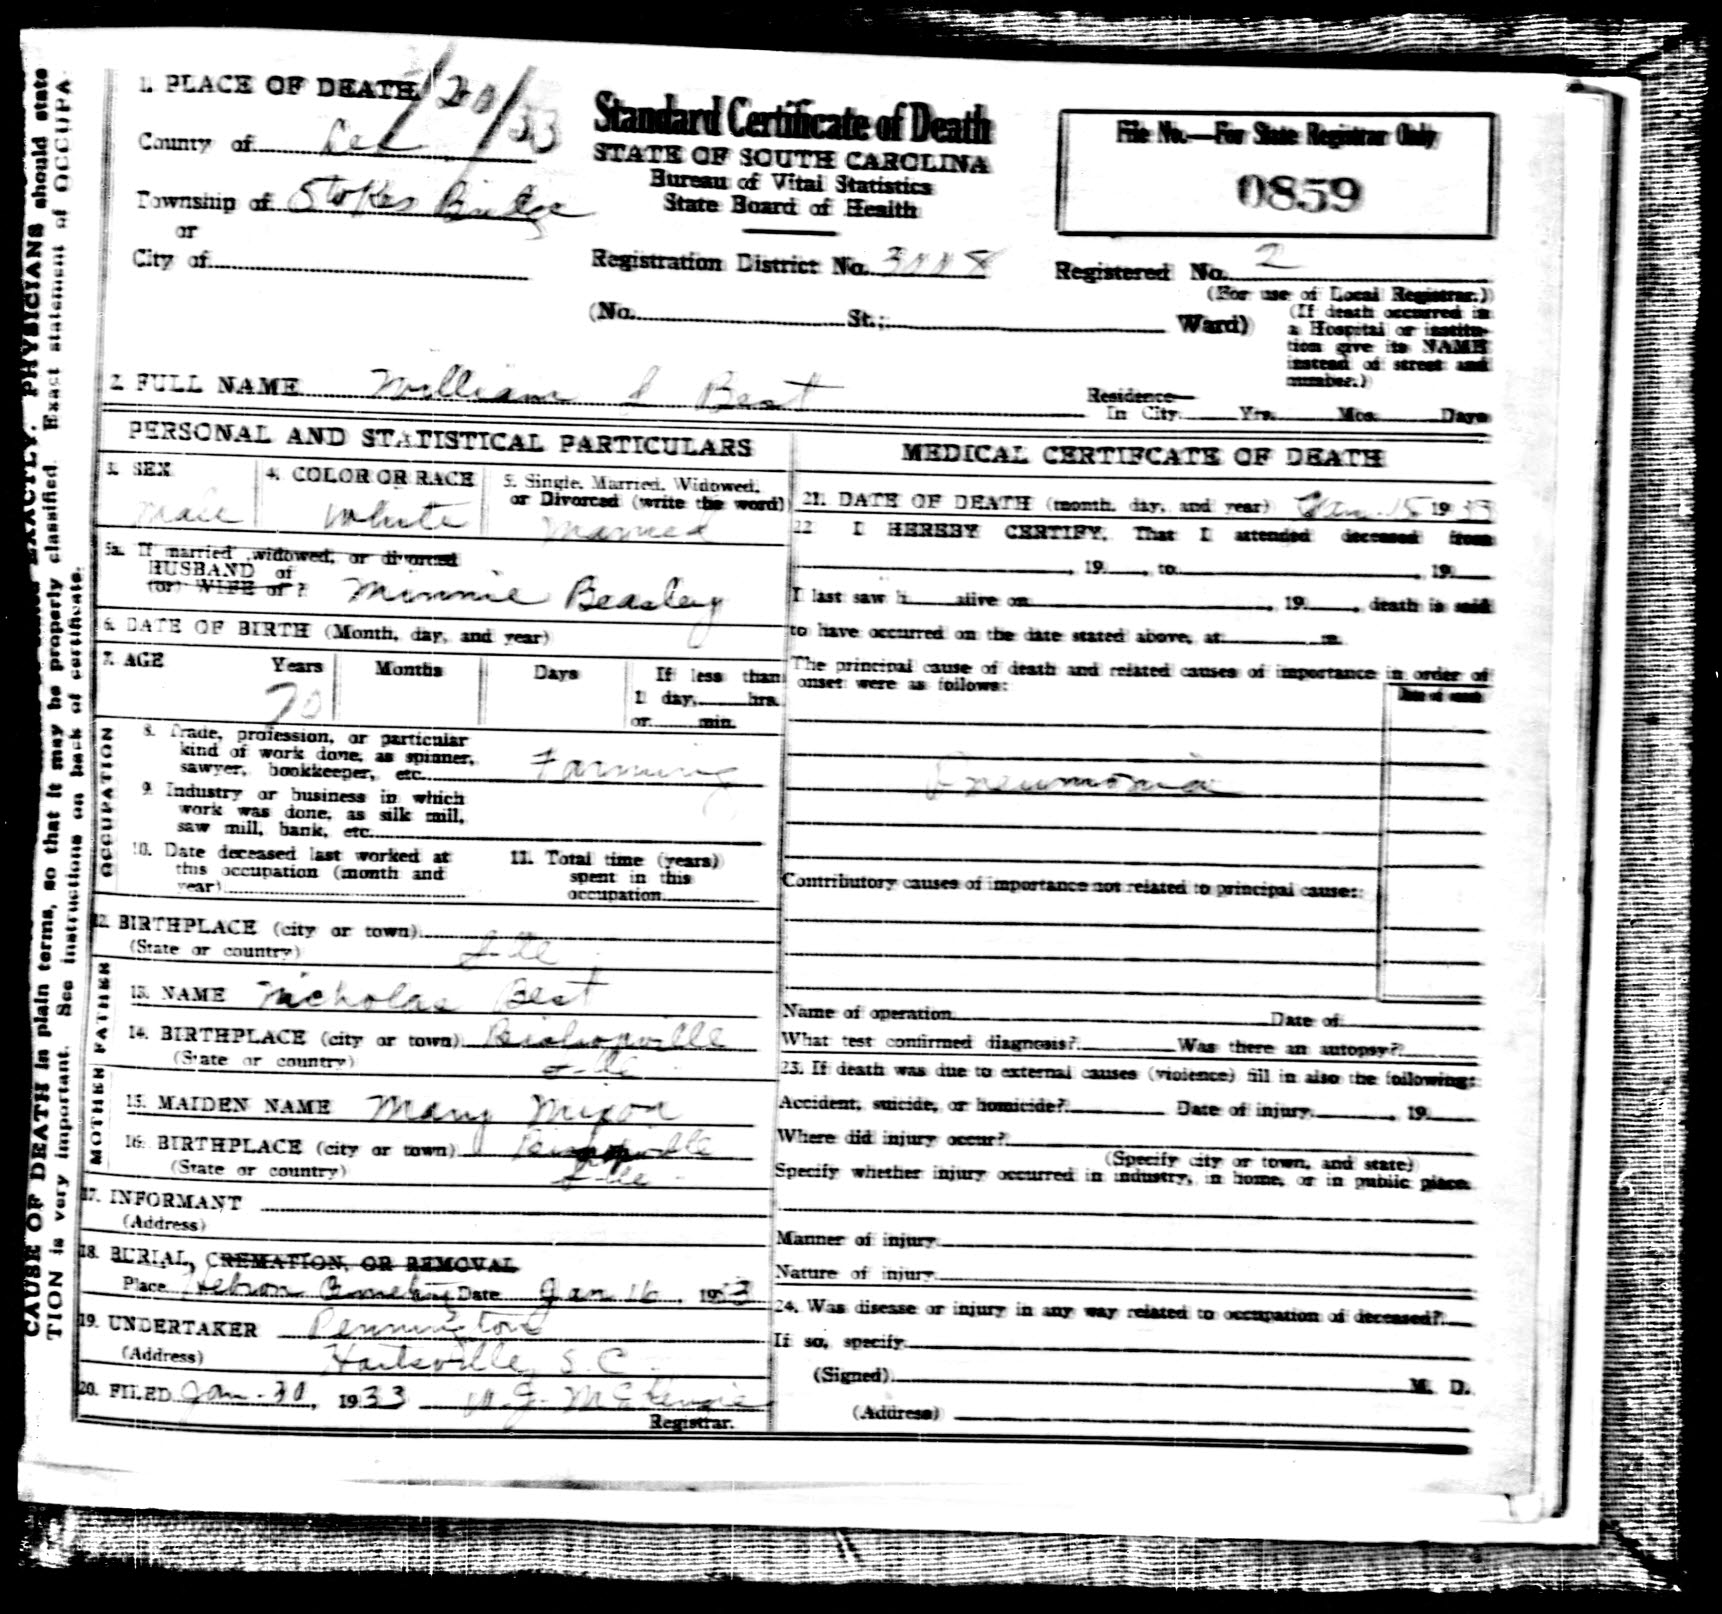 CAUSE OF DEATH in plain terms, so that it may be properly classified. Exact statement of OCCUPA-
TION is very important. See instructions on back of certificate.
EXACTLY. PHYSICIANS should state
1. PLACE OF DEATH
1/20/33
County of Lee
Township of Stokes Bridge
or
City of
Standard Certificate of Death
STATE OF SOUTH CAROLINA
Bureau of Vital Statistics
State Board of Health
File No.—For State Registrar Only
0859
Registration District No. 3008
Registered No. 2
(For use of Local Registrar.)
(No. St.; Ward)
(If death occurred in
a Hospital or institu-
tion give its NAME
instead of street and
number.)
2. FULL NAME William J Best
Residence—
In City Yrs. Mos. Days
PERSONAL AND STATISTICAL PARTICULARS
3. SEX
Male
4. COLOR OR RACE
White
5. Single, Married, Widowed,
or Divorced (write the word)
Married
5a. If married, widowed, or divorced
HUSBAND of
(or) WIFE of ? Minnie Beasley
6. DATE OF BIRTH (Month, day, and year)
7. AGE Years Months Days If less than
70 1 day, hrs.
or min.
OCCUPATION
8. Trade, profession, or particular
kind of work done, as spinner,
sawyer, bookkeeper, etc. Farming
9. Industry or business in which
work was done, as silk mill,
saw mill, bank, etc.
10. Date deceased last worked at
this occupation (month and
year)
11. Total time (years)
spent in this
occupation
12. BIRTHPLACE (city or town)
(State or country)
FATHER
13. NAME Nicholas Best
14. BIRTHPLACE (city or town) Bishopville
(State or country)
MOTHER
15. MAIDEN NAME Mary Mixon
16. BIRTHPLACE (city or town)
(State or country)
17. INFORMANT
(Address)
18. BURIAL, CREMATION, OR REMOVAL
Place Hebron Cemetery Date Jan 16, 1933
19. UNDERTAKER Pennington
(Address) Hartsville, S. C.
20. FILED Jan. 30, 1933 W. J. McKenzie
Registrar.
MEDICAL CERTIFCATE OF DEATH
21. DATE OF DEATH (month, day, and year) Jan. 15 1933
22 I HEREBY CERTIFY, That I attended deceased from
, 19 , to , 19
I last saw h alive on , 19 , death is said
to have occurred on the date stated above, at m.
The principal cause of death and related causes of importance in order of
onset were as follows:
Date of onset
Pneumonia
Contributory causes of importance not related to principal cause:
Name of operation Date of
What test confirmed diagnosis? Was there an autopsy?
23. If death was due to external causes (violence) fill in also the following:
Accident, suicide, or homicide? Date of injury , 19
Where did injury occur?
(Specify city or town, and state)
Specify whether injury occurred in industry, in home, or in public place.
Manner of injury
Nature of injury
24. Was disease or injury in any way related to occupation of deceased?
If so, specify
(Signed) M. D.
(Address)